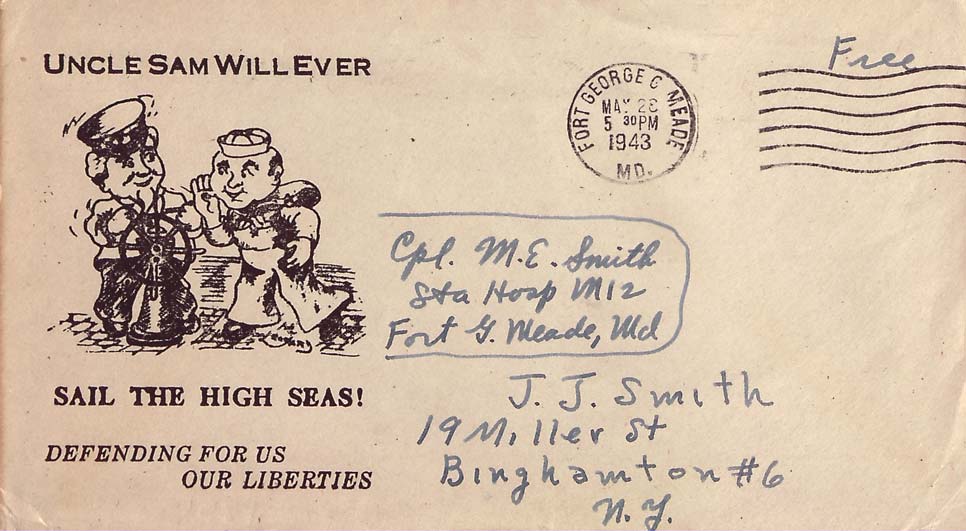 UNCLE SAM WILL EVER
SAIL THE HIGH SEAS!
DEFENDING FOR US
OUR LIBERTIES
FORT GEORGE G MEADE
MAY 28
5 30 PM
1943
MD.
Free
Cpl. M.E. Smith
Sta Hosp M12
Fort G. Meade, Md
J. J. Smith
19 Miller St
Binghamton #6
N.Y.